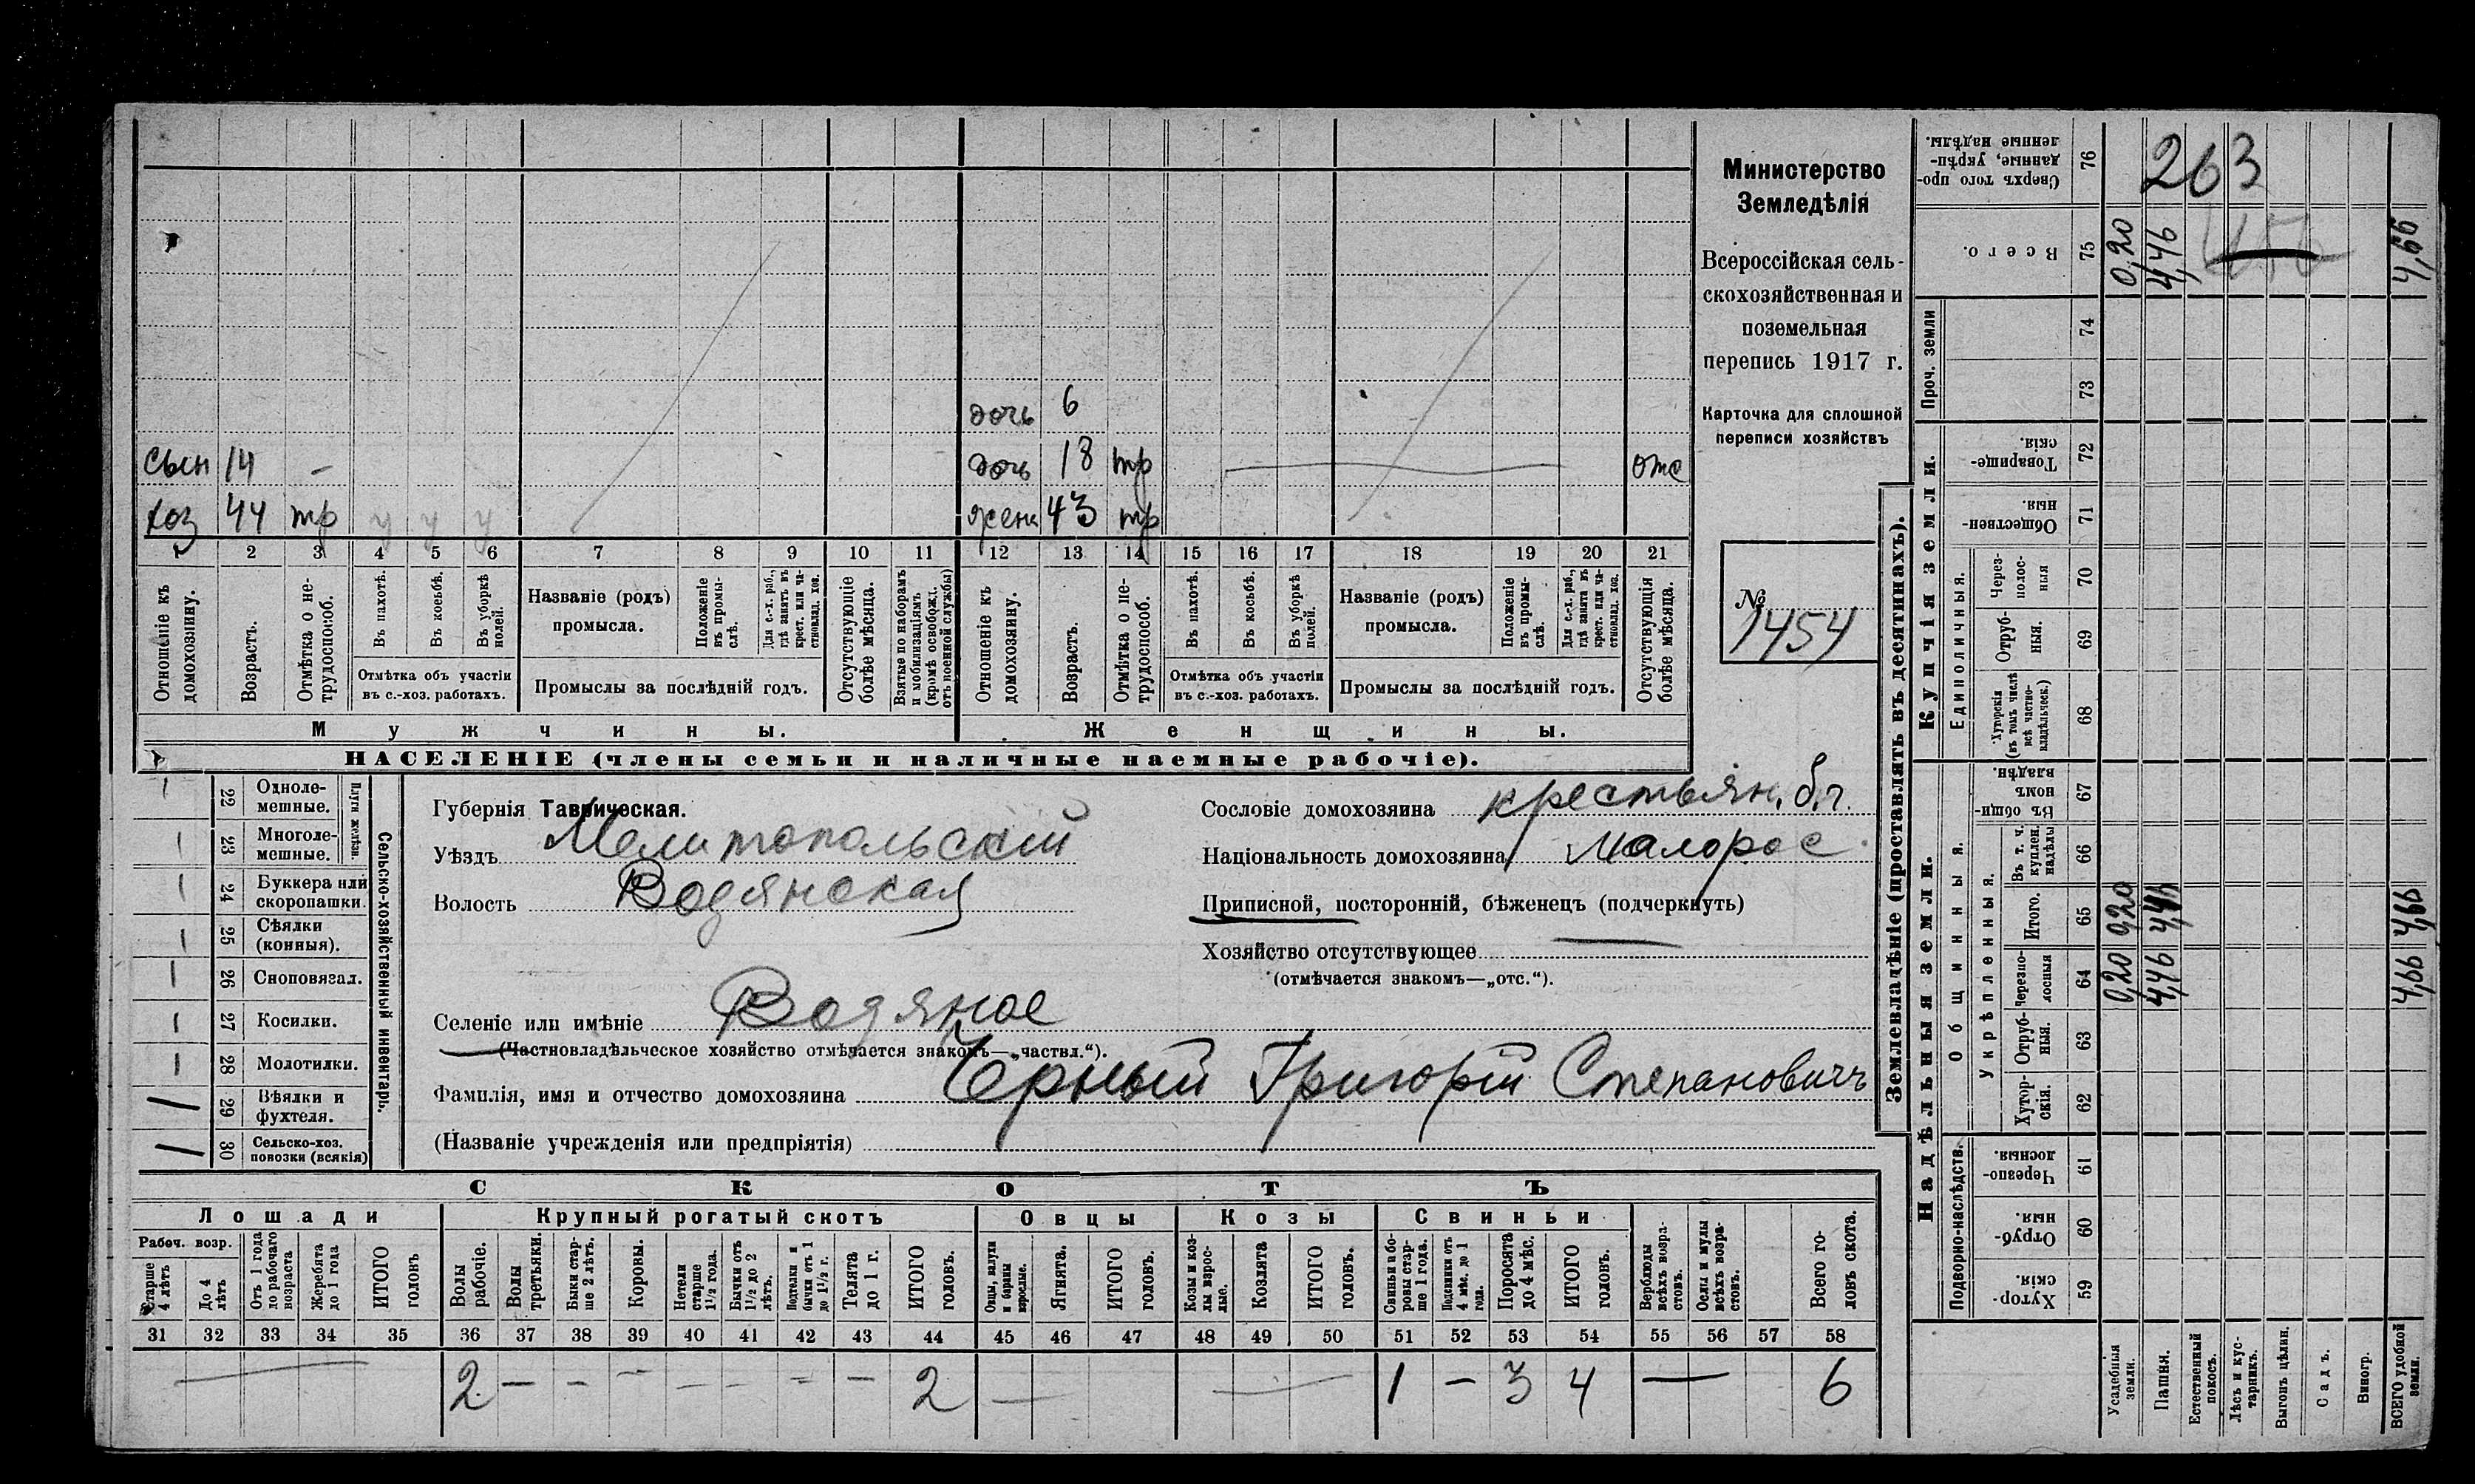 дочь 6
сын 14 – дочь 18 тр отс
хоз 44 тр у у у жена 43 тр
1 2 3 4 5 6 7 8 9 10 11 12 13 14 15 16 17 18 19 20 21
Отношеніе къ домохозяину.
Возрастъ.
Отмѣтка о нетрудоспособ.
Въ пахотѣ.
Въ косьбѣ.
Въ уборкѣ полей.
Отмѣтка объ участіи
въ с.-хоз. работахъ.
Названіе (родъ)
промысла.
Положеніе въ промыслѣ.
Для с.-х. раб., гдѣ занятъ въ крест. или частновлад. хоз.
Промыслы за послѣдній годъ.
Отсутствующіе болѣе мѣсяца.
Взятые по наборамъ и мобилизаціямъ (кромѣ освобожд. отъ военной службы)
Отношеніе къ домохозяину.
Возрастъ.
Отмѣтка о нетрудоспособ.
Въ пахотѣ.
Въ косьбѣ.
Въ уборкѣ полей.
Отмѣтка объ участіи
въ с.-хоз. работахъ.
Названіе (родъ)
промысла.
Положеніе въ промыслѣ.
Для с.-х. раб., гдѣ занята въ крест. или частновлад. хоз.
Промыслы за послѣдній годъ.
Отсутствующія болѣе мѣсяца.
Мужчины. Женщины.
НАСЕЛЕНІЕ (члены семьи и наличные наемные рабочіе).
Министерство
Земледѣлія
Всероссійская сель-
скохозяйственная и
поземельная
перепись 1917 г.
Карточка для сплошной
переписи хозяйствъ
№
1454
Сельско-хозяйственный инвентарь.
Плуги желѣзн.
22 Одноле-
мешные.
23 Многоле-
мешные.
24 Буккера или
скоропашки.
25 Сѣялки
(конныя).
26 Сноповязал.
27 Косилки.
28 Молотилки.
29 Вѣялки и
фухтеля.
30 Сельско-хоз.
повозки (всякія)
Губернія Таврическая.
Уѣздъ Мелитопольскій
Волость Водянская
Селеніе или имѣніе Водяное
(Частновладѣльческое хозяйство отмѣчается знакомъ—„частвл.“).
Фамилія, имя и отчество домохозяина Чорный Григорій Степановичъ
(Названіе учрежденія или предпріятія)
Сословіе домохозяина крестьян. б.г.
Національность домохозяина малорос.
Приписной, посторонній, бѣженецъ (подчеркнуть)
Хозяйство отсутствующее —
(отмѣчается знакомъ—„отс.“).
СКОТЪ
Лошади Крупный рогатый скотъ Овцы Козы Свиньи
Рабоч. возр.
Старше 4 лѣтъ
До 4 лѣтъ
Отъ 1 года до рабочаго возраста
Жеребята до 1 года
ИТОГО головъ
Волы рабочіе.
Волы третьяки.
Быки старше 2 лѣтъ.
Коровы.
Нетели старше 1½ года.
Бычки отъ 1½ до 2 лѣтъ.
Подтелки и бычки отъ 1 до 1½ г.
Телята до 1 г.
ИТОГО головъ.
Овцы, валухи и бараны взрослые.
Ягнята.
ИТОГО головъ.
Козы и козлы взрослые.
Козлята
ИТОГО головъ.
Свиньи и боровы старше 1 года.
Подсвинки отъ 4 мѣс. до 1 года.
Поросята до 4 мѣс.
ИТОГО головъ.
Верблюды всѣхъ возрастовъ.
Ослы и мулы всѣхъ возрастовъ.
Всего головъ скота.
31 32 33 34 35 36 37 38 39 40 41 42 43 44 45 46 47 48 49 50 51 52 53 54 55 56 57 58
— 2 – – – – – – – 2 — — 1 – 3 4 — 6
Землевладѣніе (проставлять въ десятинахъ).
Купчія земли.
Надѣльныя земли.
Проч. земли
Единоличныя.
Общинныя.
Укрѣпленныя.
Подворно-наслѣдств.
Сверхъ того проданные, укрѣпленные надѣлы. 76
263
Всего. 75 0,20 4,46 4,66
74
73
Товарищескія. 72
Общественныя. 71
Черезполосныя 70
Отрубныя. 69
Хуторскія (въ томъ числѣ всѣ частновладѣльческ.) 68
Въ общинномъ владѣн. 67
Въ т. ч. куплен. надѣлы 66
Итого. 65 0,20 4,46 4,66
Черезполосныя 64 0,20 4,46 4,66
Отрубныя. 63
Хуторскія. 62
Черезполосныя. 61
Отрубныя. 60
Хуторскія. 59
Усадебныя земли.
Пашня.
Естественный покосъ.
Лѣсъ и кустарникъ.
Выгонъ цѣлин.
Садъ.
Виногр.
ВСЕГО удобной земли.